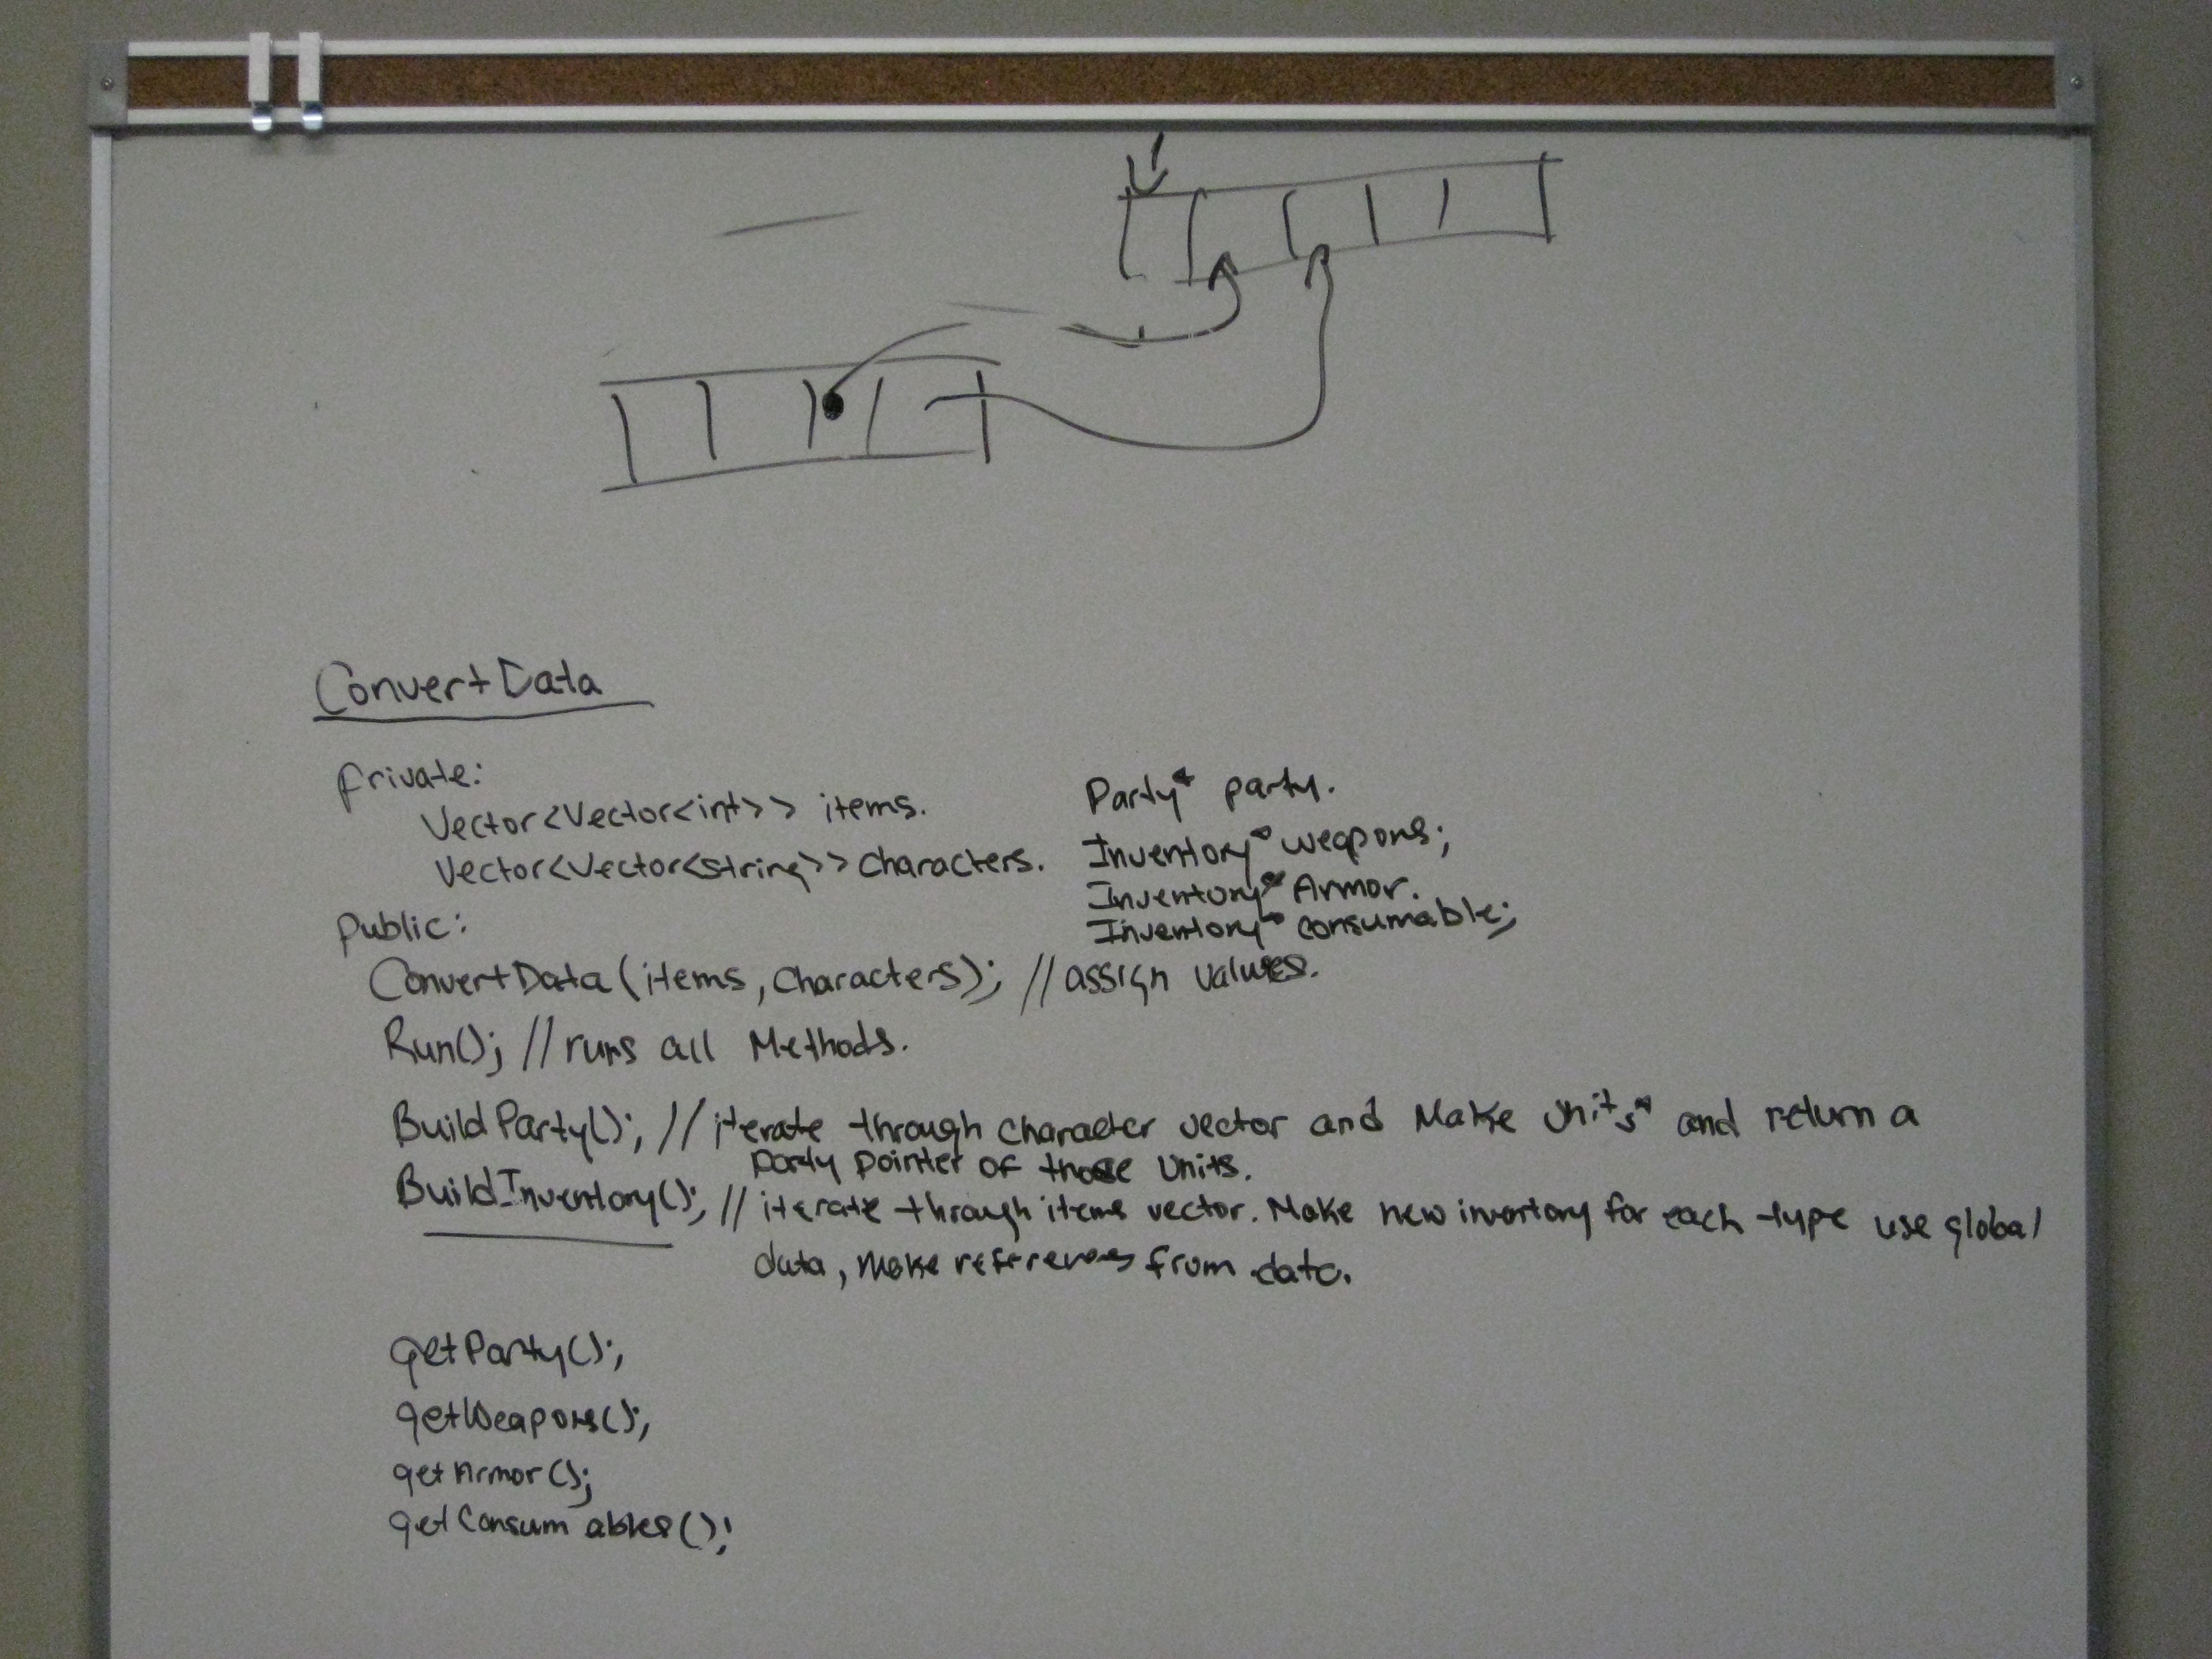 ConvertData
Private:
Vector<Vector<int>> items.
Vector<Vector<string>> Characters.
Party* party.
Inventory* weapons;
Inventory* Armor.
Inventory* consumable;
Public:
ConvertData(items, Characters); // assign values.
Run(); // runs all Methods.
BuildParty(); // iterate through character vector and Make Units* and return a
party pointer of those Units.
BuildInventory(); // iterate through items vector. Make new inventory for each type use global
data, make references from data.
getParty();
getWeapons();
getArmor();
getConsumables();